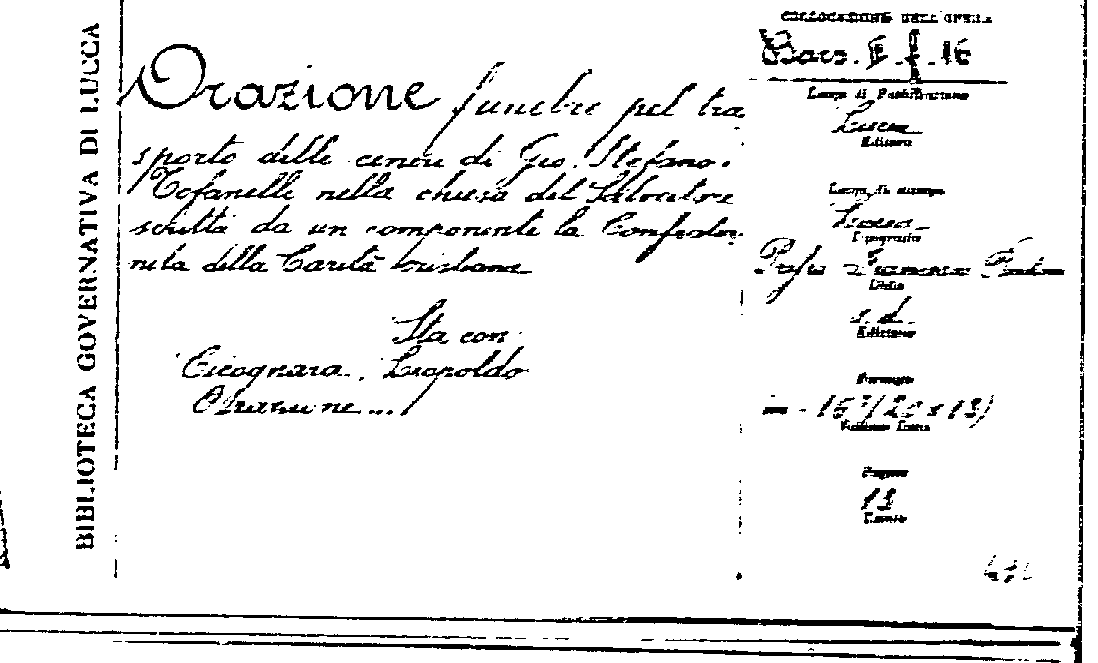 BIBLIOTECA GOVERNATIVA DI LUCCA
Orazione funebre pel tra
sporto delle ceneri di Gio. Stefano.
Tofanelli nella chiesa del Salvatore
scritta da un componente la Confrater
nita della Carità cristiana
Sta con
Cicognara, Leopoldo
Orazione...
COLLOCAZIONE DELL'OPERA
Bacs. II f. 16
Luogo di Pubblicazione
Lucca
Editore
Luogo di stampa
Lucca
Tipografia
Presso Francesco
Data
s.d.
Edizione
Formato
in-16º (20x13)
Volume
Pagine
13
Tavole